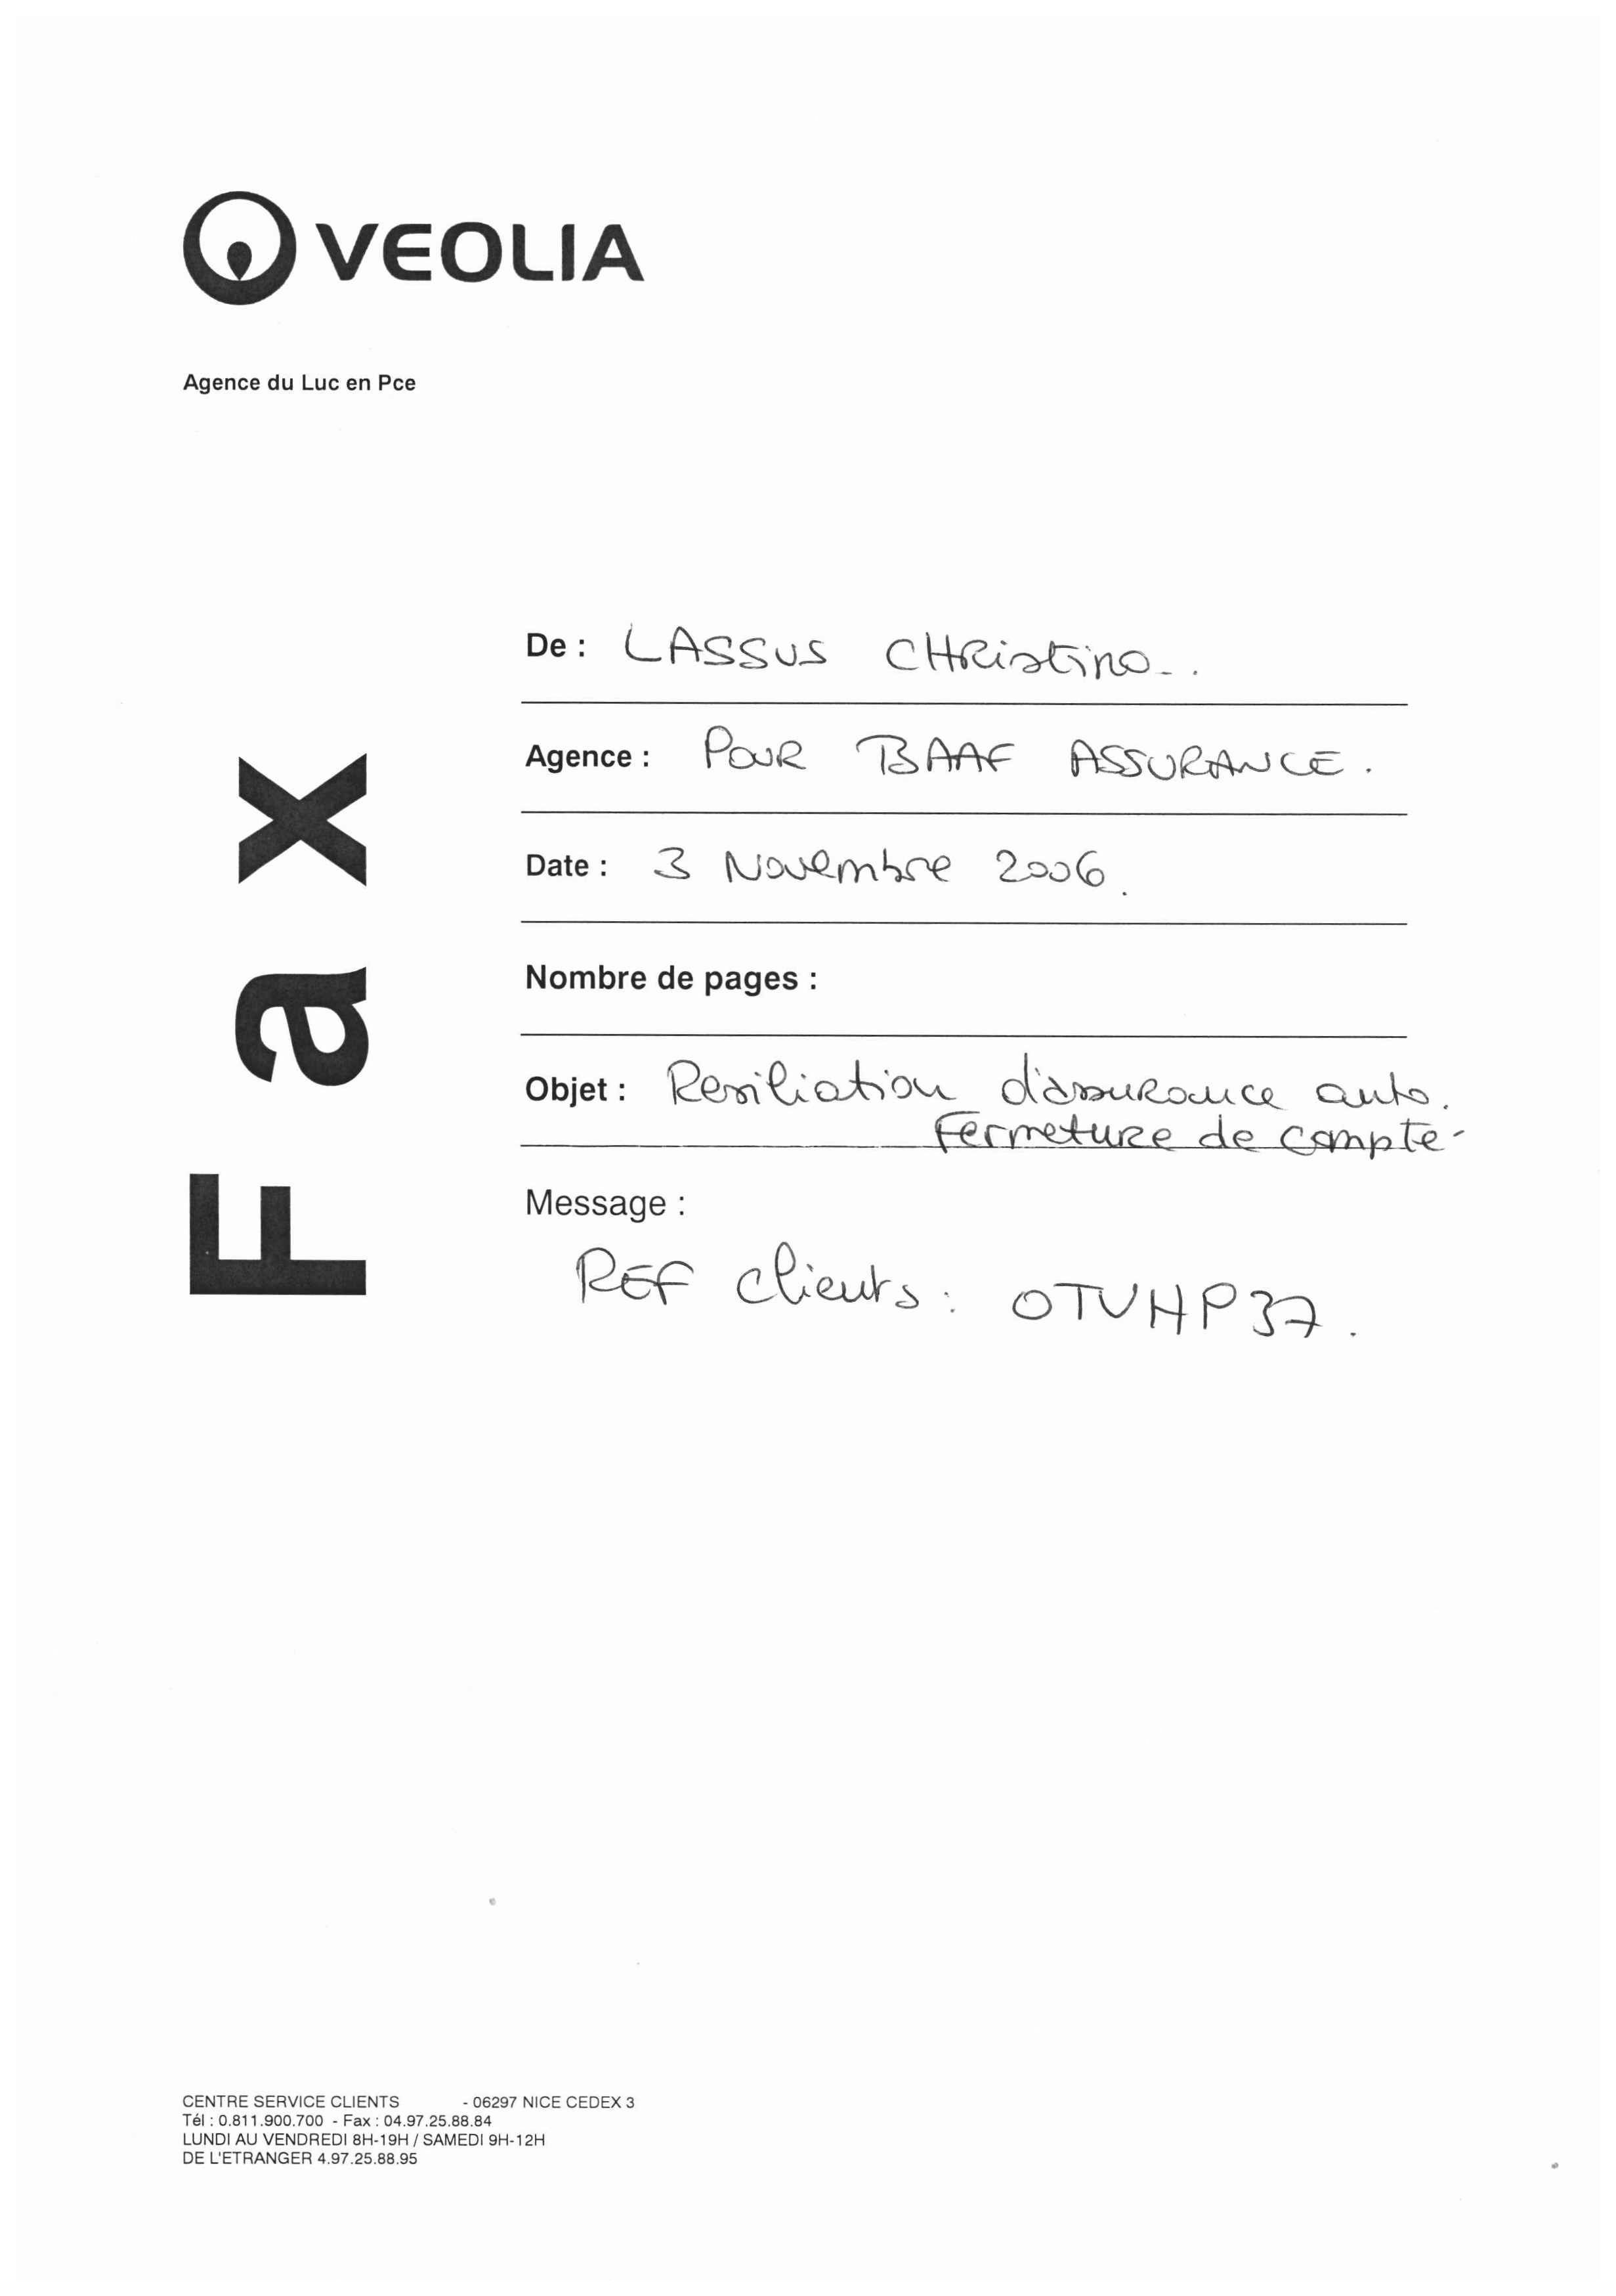 VEOLIA
Agence du Luc en Pce
Fax
De : LASSUS CHRistine.
Agence : POUR BAAF ASSURANCE.
Date : 3 Novembre 2006.
Nombre de pages :
Objet : Resiliation d'assurance auto.
Fermeture de compte-
Message :
REF Clients : OTVHP37.
CENTRE SERVICE CLIENTS - 06297 NICE CEDEX 3
Tél : 0.811.900.700 - Fax : 04.97.25.88.84
LUNDI AU VENDREDI 8H-19H / SAMEDI 9H-12H
DE L'ETRANGER 4.97.25.88.95